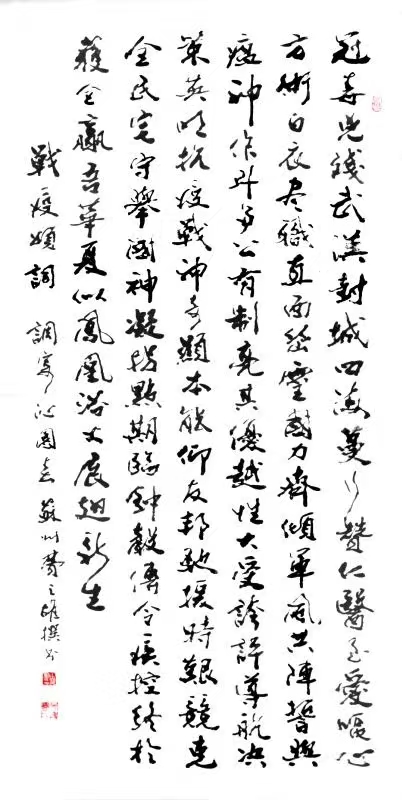 冠毒兇殘武漢封城四海蔓行贊仁醫至愛暖心
方術白衣盡職直面靈勠力齊傾軍風共陣誓與
瘟神作斗爭公有制亮其優越性大受誇評導航決
策英明抗疫戰神奇顯本能仰友邦馳援時艱競克
全民完守舉國神凝拐點期臨鐘聲傳令疾控終於
獲全贏吾華夏似鳳凰浴火展翅新生
戰疫頌詞 調寄沁園春 蘇州費之雄撰書